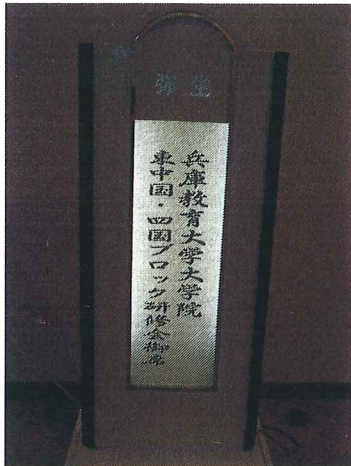 弥生
兵庫教育大学大学院
東中国・四国ブロック研修会御席